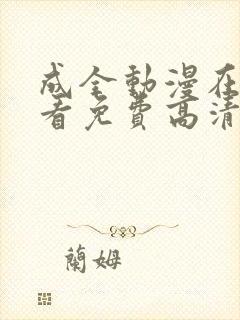 成全動漫在
看免費高清
蘭姆